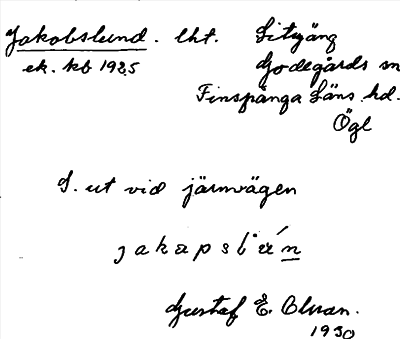 Jakobslund. lht. Sityäng
ek. kb 1925 Godegårds sn
Finspånga Läns hd.
Ögl
S. ut vid järnvägen
Gustaf E. Olsson.
1930